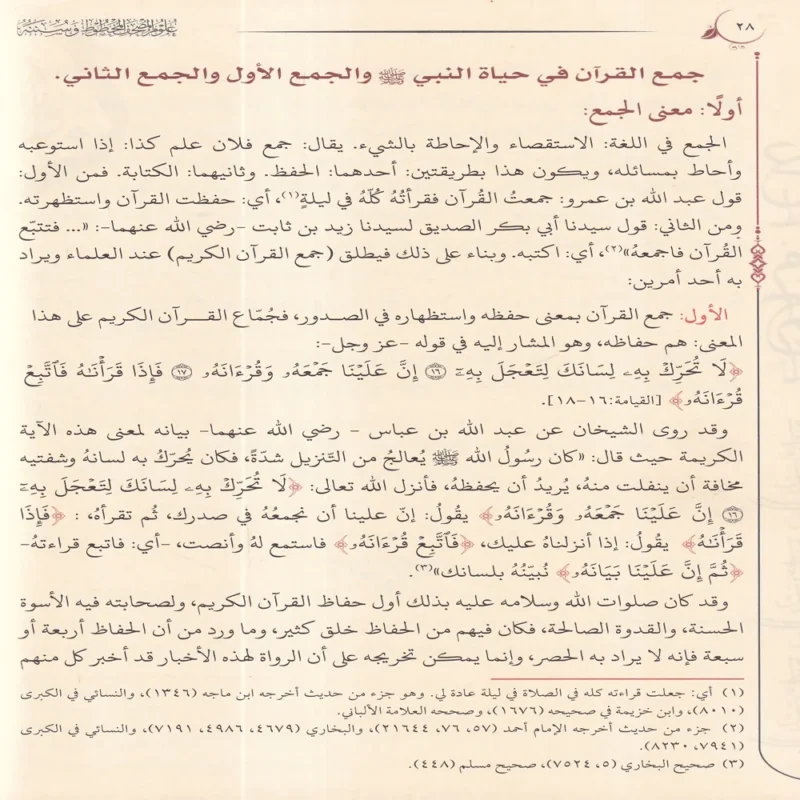 ٢٨
علوم المصحف المخطوط وسننه
جمع القرآن في حياة النبي ﷺ والجمع الأول والجمع الثاني.
أولًا: معنى الجمع:
الجمع في اللغة: الاستقصاء والإحاطة بالشيء. يقال: جمع فلان علم كذا: إذا استوعبه
وأحاط بمسائله، ويكون هذا بطريقتين: أحدهما: الحفظ. وثانيهما: الكتابة. فمن الأول:
قول عبد الله بن عمرو: جمعتُ القُرآن فقرأتُهُ كُلّهُ في ليلةٍ(١)، أي: حفظت القرآن واستظهرته.
ومن الثاني: قول سيدنا أبي بكر الصديق لسيدنا زيد بن ثابت -رضي الله عنهما-: «... فتتبّع
القُرآن فاجمعهُ»(٢)، أي: اكتبه. وبناء على ذلك فيطلق (جمع القرآن الكريم) عند العلماء ويراد
به أحد أمرين:
الأول: جمع القرآن بمعنى حفظه واستظهاره في الصدور، فجُمّاع القرآن الكريم على هذا
المعنى: هم حفاظه، وهو المشار إليه في قوله -عز وجل-:
﴿لَا تُحَرِّكْ بِهِۦ لِسَانَكَ لِتَعْجَلَ بِهِۦٓ ١٦ إِنَّ عَلَيْنَا جَمْعَهُۥ وَقُرْءَانَهُۥ ١٧ فَإِذَا قَرَأْنَٰهُ فَٱتَّبِعْ
قُرْءَانَهُۥ﴾ [القيامة:١٦-١٨].
وقد روى الشيخان عن عبد الله بن عباس - رضي الله عنهما- بيانه لمعنى هذه الآية
الكريمة حيث قال: «كان رسُولُ الله ﷺ يُعالجُ من التّنزيل شدّةً، فكان يُحرّكُ به لسانهُ وشفتيه
مخافة أن ينفلت منهُ، يُريدُ أن يحفظهُ، فأنزل الله تعالى: ﴿لَا تُحَرِّكْ بِهِۦ لِسَانَكَ لِتَعْجَلَ بِهِۦٓ
١٦ إِنَّ عَلَيْنَا جَمْعَهُۥ وَقُرْءَانَهُۥ﴾ يقُولُ: إنّ علينا أن نجمعُهُ في صدرك، ثُم تقرأهُ، : ﴿فَإِذَا
قَرَأْنَٰهُ﴾ يقُولُ: إذا أنزلناهُ عليك، ﴿فَٱتَّبِعْ قُرْءَانَهُۥ﴾ فاستمع لهُ وأنصت، -أي: فاتبع قراءته-
﴿ثُمَّ إِنَّ عَلَيْنَا بَيَانَهُۥ﴾ نُبيّنُهُ بلسانك»(٣).
وقد كان صلوات الله وسلامه عليه بذلك أول حفاظ القرآن الكريم، ولصحابته فيه الأسوة
الحسنة، والقدوة الصالحة، فكان فيهم من الحفاظ خلق كثير، وما ورد من أن الحفاظ أربعة أو
سبعة فإنه لا يراد به الحصر، وإنما يمكن تخريجه على أن الرواة لهذه الأخبار قد أخبر كل منهم
(١) أي: جعلت قراءته كله في الصلاة في ليلة عادة لي. وهو جزء من حديث أخرجه ابن ماجه (١٣٤٦)، والنسائي في الكبرى
(٨٠١٠)، وابن خزيمة في صحيحه (١٦٧٦)، وصححه العلامة الألباني.
(٢) جزء من حديث أخرجه الإمام أحمد (٥٧، ٧٦، ٢١٦٤٤)، والبخاري (٤٦٧٩، ٤٩٨٦، ٧١٩١)، والنسائي في الكبرى
(٧٩٤١، ٨٢٣٠).
(٣) صحيح البخاري (٥، ٧٥٢٤)، صحيح مسلم (٤٤٨).